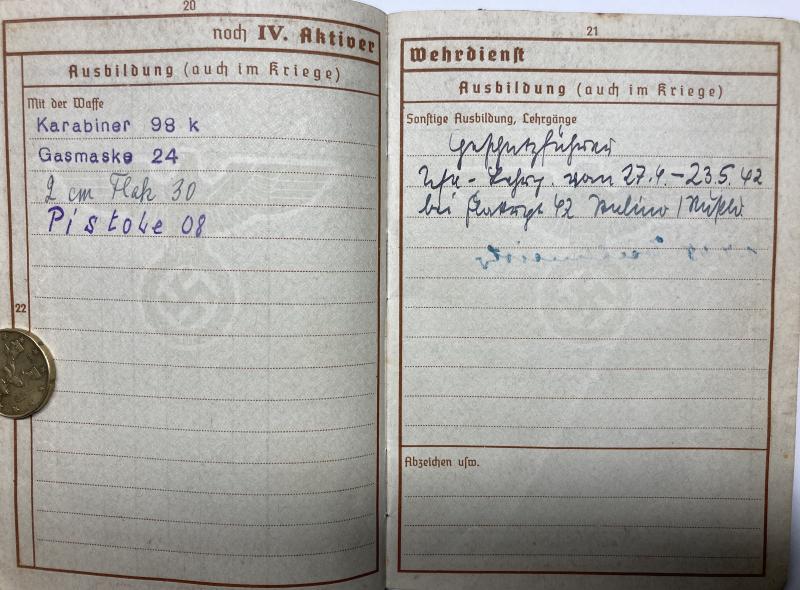 20
noch IV. Aktiver
Ausbildung (auch im Kriege)
Mit der Waffe
Karabiner 98 k
Gasmaske 24
2 cm Flak 30
Pistole 08
22
21
Wehrdienst
Ausbildung (auch im Kriege)
Sonstige Ausbildung, Lehrgänge
Geschützführer
vom 27.4. – 23.5. 42
bei 42
Abzeichen usw.